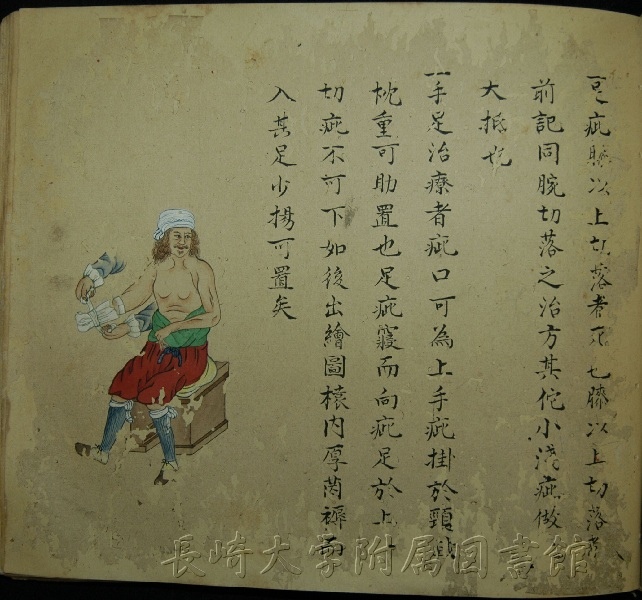 一足疵膝以上切落者死也膝以上切落者
前記同腕切落之治方其佗小淺疵倣
大抵也
一手足治療者疵口可為上手疵掛於頸或
枕重可助置也足疵寢而向疵足於上一
切疵不可下如後出繪圖櫃内厚茵褥而
入其足少揚可置矣
長崎大学附属図書館